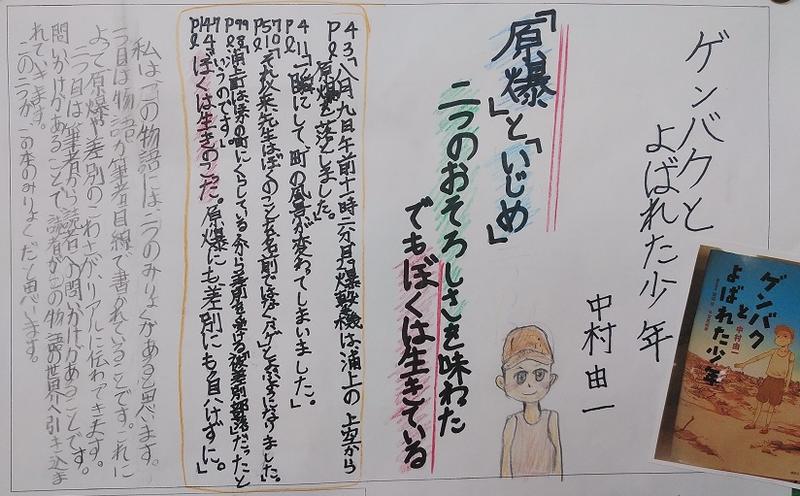 ゲンバクと
よばれた少年
中村由一
「原爆」と「いじめ」
二つのおそろしさを味わった
でもぼくは生きている
P43「八月九日午前十一時二分、爆撃機は浦上の上空から
原爆を落としました。」
P41「一瞬にして、町の風景が変わってしまいました。」
「それ以来先生はぼくのことを名前ではなく「ハゲ」とよぶようになりました。」
「浦上町は
いうのです。」
「ぼくは生きのこった。原爆にも差別にも負けずに。」
私はこの物語には二つのみりょくがあると思います。
一つ目は物語が筆者目線で書かれていることです。これに
よって原爆や差別のこわさがリアルに伝わってきます。
二つ目は筆者から読者へ問いかけがあることです。
問いかけがあることで読者がこの物語の世界へ引き込ま
れていきます。
この二つが、この本のみりょくだと思います。
ゲンバク
と
よばれた少年
中村由一